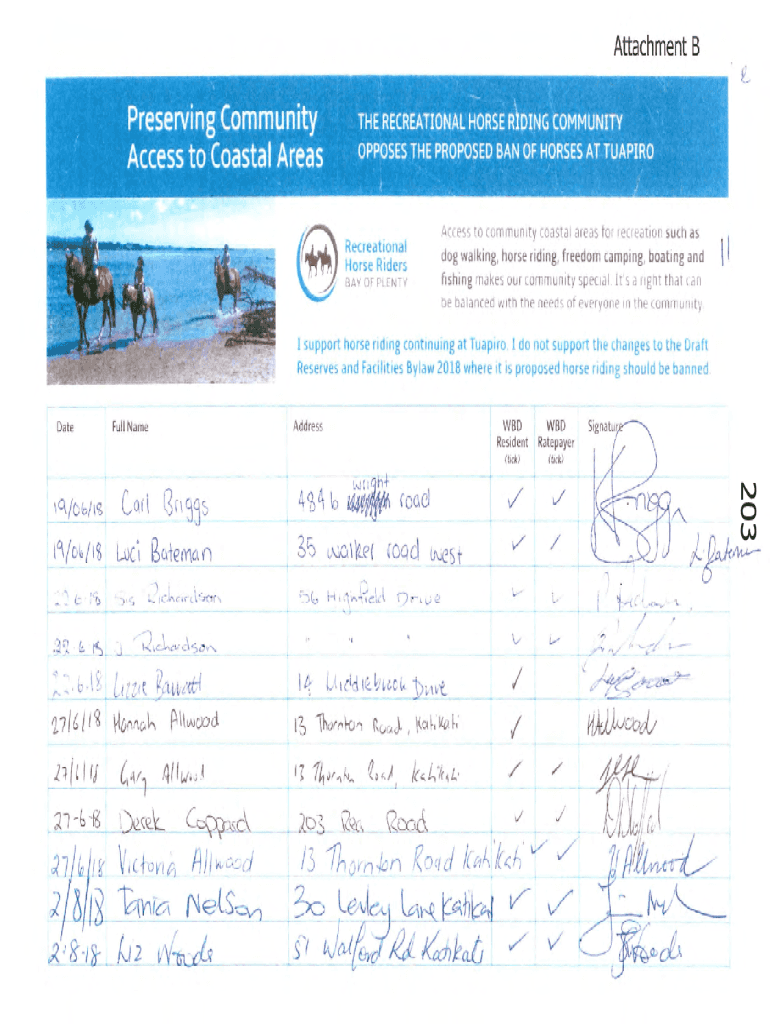 Attachment B
Preserving Community
Access to Coastal Areas
THE RECREATIONAL HORSE RIDING COMMUNITY
OPPOSES THE PROPOSED BAN OF HORSES AT TUAPIRO
Recreational
Horse Riders
BAY OF PLENTY
Access to community coastal areas for recreation such as
dog walking, horse riding, freedom camping, boating and
fishing makes our community special. It's a right that can
be balanced with the needs of everyone in the community.
11
I support horse riding continuing at Tuapiro. I do not support the changes to the Draft
Reserves and Facilities Bylaw 2018 where it is proposed horse riding should be banned.
Date Full Name Address WBD Resident (tick) WBD Ratepayer (tick) Signature
19/06/18 Carl Briggs 484 b wright road ✓ ✓
19/06/18 Luci Bateman 35 walker road west ✓ ✓ L Bateman
22-6-18 Richardson 56 Highfield Drive ✓ ✓
22 6 18 J Richardson " " " ✓ ✓
22.6.18 Lizzie Barrott 14 Middlebrook Drive ✓
27/6/18 Hannah Allwood 13 Thornton Road, Katikati ✓ HAllwood
27/6/18 Gary Allwood 13 Thornton Road, Katikati ✓ ✓
27-6-18 Derek Coppard 203 Rea Road ✓ ✓
27/6/18 Victoria Allwood 13 Thornton Road Katikati ✓ ✓ VAllwood
2/8/18 Tania Nelson 30 Levley Lane Katikati ✓ ✓
2.8.18 Liz Woods 51 Walford Rd Katikati ✓ ✓
203